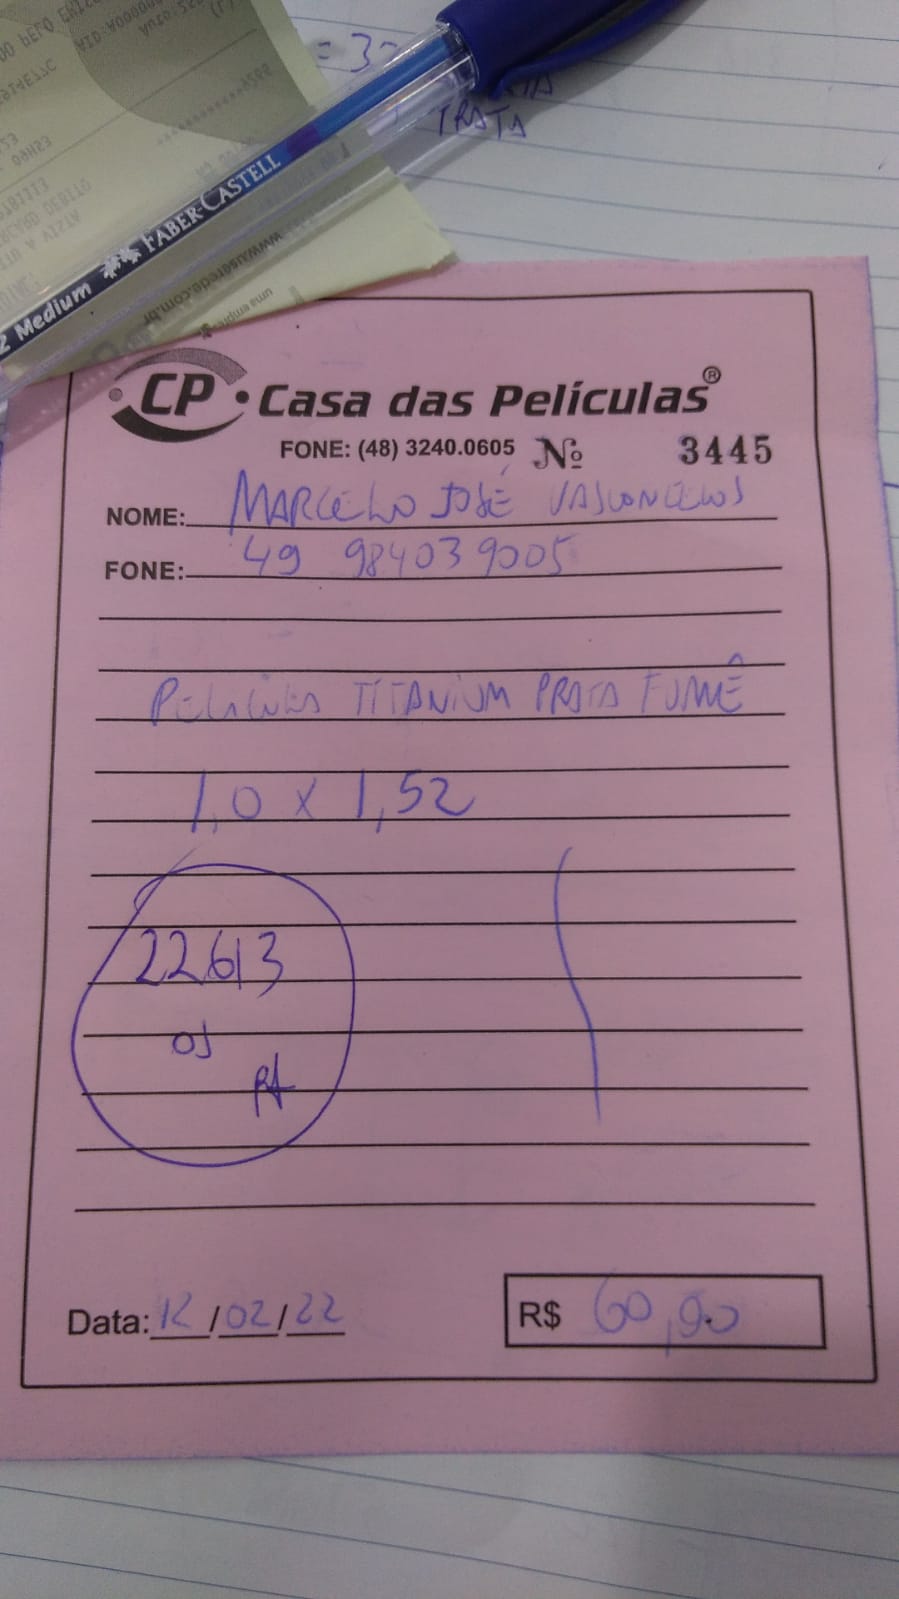 = 3
TRATA
2 Medium FABER-CASTELL
CP Casa das Películas®
FONE: (48) 3240.0605 Nº 3445
NOME: MARCELO JOSÉ VASCONCELOS
FONE: 49 984039005
PELÍCULA TITANIUM PRATA FUMÊ
1,0 x 1,52
22613
OS
Data: 12/02/22
R$ 60,90